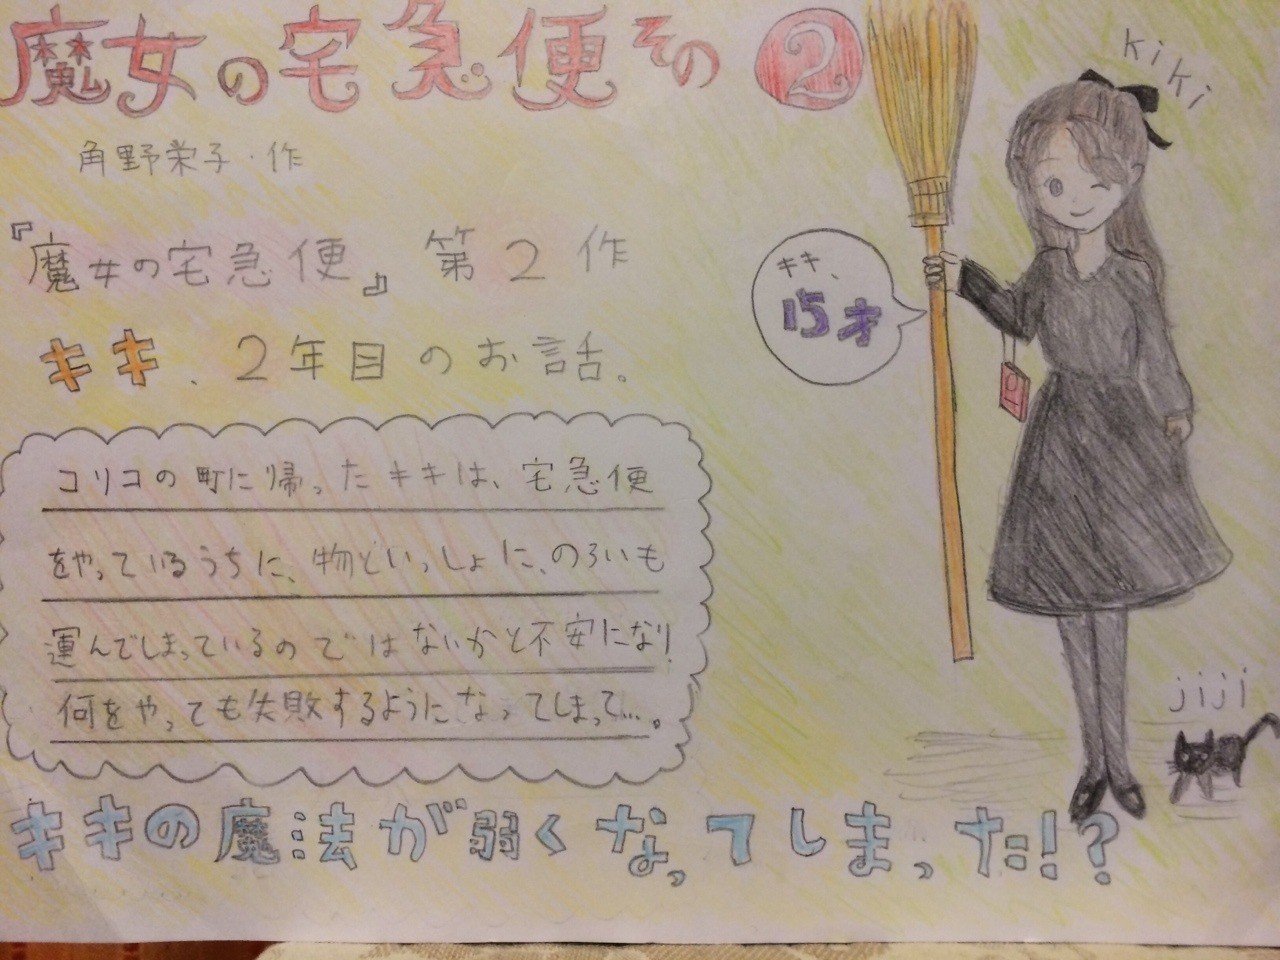 魔女の宅急便その②
角野栄子・作
『魔女の宅急便』第2作
キキ、2年目のお話。
kiki
キキ、
15才
コリコの町に帰ったキキは、宅急便
をやっているうちに、物といっしょに、のろいも
運んでしまっているのではないかと不安になり!
何をやっても失敗するようになってしまって…。
jiji
キキの魔法が弱くなってしまった!?